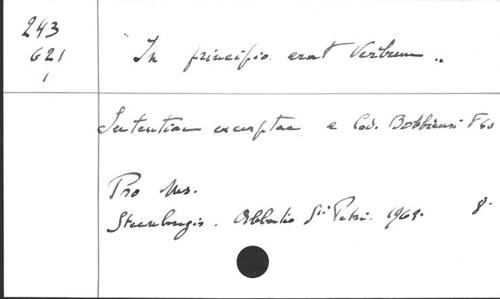 243
621
1
"In principio erat Verbum"
Sententiae excerptae e Cod. Bobbiensi
Pro Ms.
Steenbrugis. Abbatia Sti Petri. 1968. 8°